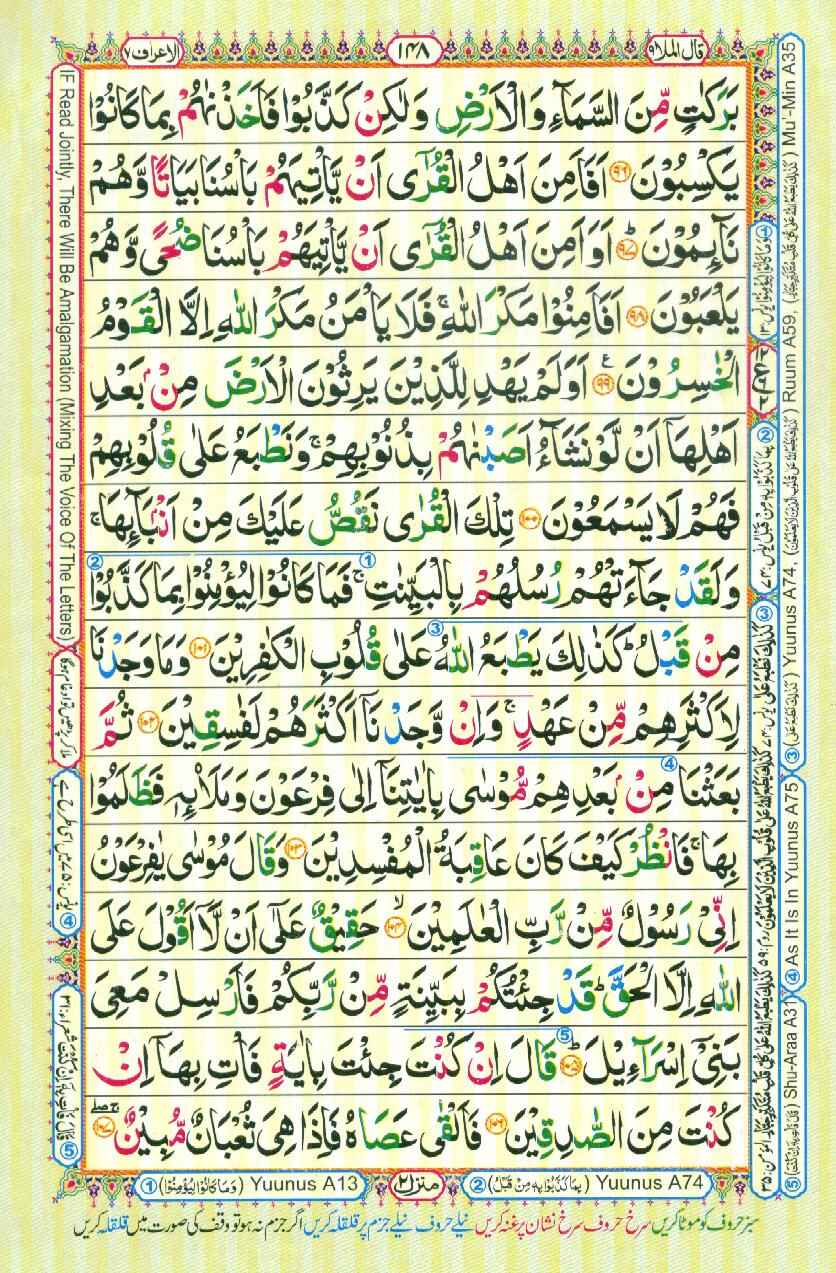 قال الملا ٩
١٤٨
الاعراف ٧
بَرَكٰتٍ مِّنَ السَّمَآءِ وَالْاَرْضِ وَلٰكِنْ كَذَّبُوْا فَاَخَذْنٰهُمْ بِمَا كَانُوْا
يَكْسِبُوْنَ ﴿٩٦﴾ اَفَاَمِنَ اَهْلُ الْقُرٰٓى اَنْ يَّاْتِيَهُمْ بَاْسُنَا بَيَاتًا وَّهُمْ
نَآئِمُوْنَ ؕ﴿٩٧﴾ اَوَاَمِنَ اَهْلُ الْقُرٰٓى اَنْ يَّاْتِيَهُمْ بَاْسُنَا ضُحًى وَّهُمْ
يَلْعَبُوْنَ ﴿٩٨﴾ اَفَاَمِنُوْا مَكْرَ اللّٰهِ ۚ فَلَا يَاْمَنُ مَكْرَ اللّٰهِ اِلَّا الْقَوْمُ
الْخٰسِرُوْنَ ﴿٩٩﴾ ع اَوَلَمْ يَهْدِ لِلَّذِيْنَ يَرِثُوْنَ الْاَرْضَ مِنْۢ بَعْدِ
اَهْلِهَاۤ اَنْ لَّوْ نَشَآءُ اَصَبْنٰهُمْ بِذُنُوْبِهِمْ ۚ وَنَطْبَعُ عَلٰى قُلُوْبِهِمْ
فَهُمْ لَا يَسْمَعُوْنَ ﴿١٠٠﴾ تِلْكَ الْقُرٰى نَقُصُّ عَلَيْكَ مِنْ اَنْۢبَآئِهَا ۚ
وَلَقَدْ جَآءَتْهُمْ رُسُلُهُمْ بِالْبَيِّنٰتِ ۚ فَمَا كَانُوْا لِيُؤْمِنُوْا بِمَا كَذَّبُوْا
مِنْ قَبْلُ ؕ كَذٰلِكَ يَطْبَعُ اللّٰهُ عَلٰى قُلُوْبِ الْكٰفِرِيْنَ ﴿١٠١﴾ وَمَا وَجَدْنَا
لِاَكْثَرِهِمْ مِّنْ عَهْدٍ ۚ وَاِنْ وَّجَدْنَاۤ اَكْثَرَهُمْ لَفٰسِقِيْنَ ﴿١٠٢﴾ ثُمَّ
بَعَثْنَا مِنْۢ بَعْدِهِمْ مُّوْسٰى بِاٰيٰتِنَاۤ اِلٰى فِرْعَوْنَ وَمَلَا۟ئِهٖ فَظَلَمُوْا
بِهَا ۚ فَانْظُرْ كَيْفَ كَانَ عَاقِبَةُ الْمُفْسِدِيْنَ ﴿١٠٣﴾ وَقَالَ مُوْسٰى يٰفِرْعَوْنُ
اِنِّىْ رَسُوْلٌ مِّنْ رَّبِّ الْعٰلَمِيْنَ ۙ﴿١٠٤﴾ حَقِيْقٌ عَلٰٓى اَنْ لَّاۤ اَقُوْلَ عَلَى
اللّٰهِ اِلَّا الْحَقَّ ؕ قَدْ جِئْتُكُمْ بِبَيِّنَةٍ مِّنْ رَّبِّكُمْ فَاَرْسِلْ مَعِىَ
بَنِىْۤ اِسْرَآءِيْلَ ؕ﴿١٠٥﴾ قَالَ اِنْ كُنْتَ جِئْتَ بِاٰيَةٍ فَاْتِ بِهَاۤ اِنْ
كُنْتَ مِنَ الصّٰدِقِيْنَ ﴿١٠٦﴾ فَاَلْقٰى عَصَاهُ فَاِذَا هِىَ ثُعْبَانٌ مُّبِيْنٌ ﴿١٠٧﴾
① (وَمَا كَانُوْا لِيُؤْمِنُوْا) Yuunus A13
منزل ٢
② (بِمَا كَذَّبُوْا بِهٖ مِنْ قَبْلُ) Yuunus A74
سبز حروف کو موٹا کریں سرخ حروف سرخ نشان پر غنہ کریں نیلے حروف نیلے جزم پر قلقلہ کریں اگر جزم نہ ہو تو وقف کی صورت میں قلقلہ کریں
IF Read Jointly, There Will Be Amalgamation (Mixing The Voice Of The Letters)
ملا کر پڑھیں تو ادغام ہوگا
③ (كَذٰلِكَ نَطْبَعُ عَلٰى) Yuunus A74, Ruum A59, Mu'-Min A35
④ As It Is In Yuunus A75
⑤ (قَالَ فَاْتِ بِهٖۤ اِنْ كُنْتَ) Shu-Araa A31